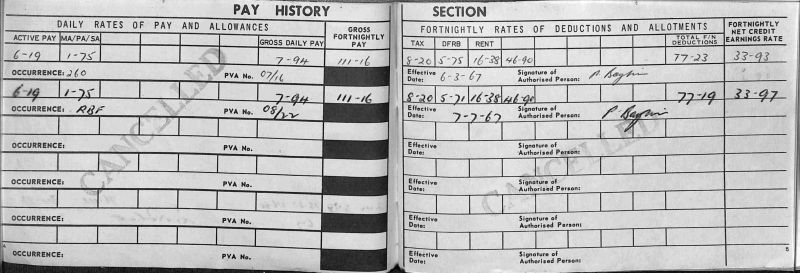 PAY HISTORY SECTION
DAILY RATES OF PAY AND ALLOWANCES
ACTIVE PAY MA/PA/SA GROSS DAILY PAY GROSS FORTNIGHTLY PAY
6-19 1-75 7-94 111-16
OCCURRENCE: 260 PVA No. 07/16
6-19 1-75 7-94 111-16
OCCURRENCE: RBF PVA No. 08/22
OCCURRENCE: PVA No.
OCCURRENCE: PVA No.
OCCURRENCE: PVA No.
OCCURRENCE: PVA No.
CANCELLED
4
FORTNIGHTLY RATES OF DEDUCTIONS AND ALLOTMENTS
TAX DFRB RENT TOTAL F/N DEDUCTIONS FORTNIGHTLY NET CREDIT EARNINGS RATE
8-20 5-75 16-38 46-90 77-23 33-93
Effective Date: 6-3-67 Signature of Authorised Person:
8-20 5-71 16-38 46-90 77-19 33-97
Effective Date: 7-7-67 Signature of Authorised Person:
Effective Date: Signature of Authorised Person:
Effective Date: Signature of Authorised Person:
Effective Date: Signature of Authorised Person:
Effective Date: Signature of Authorised Person:
CANCELLED
5